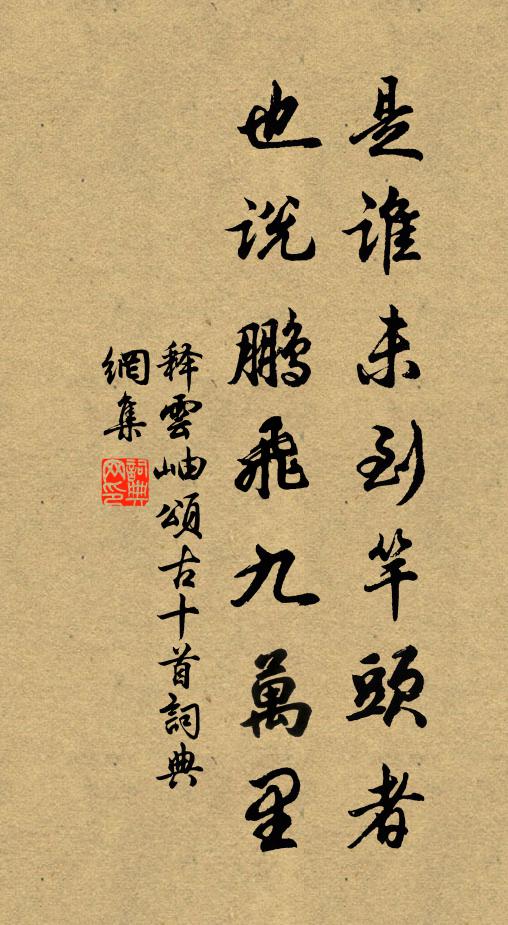 是谁未到竿頭者
也说鵬飛九萬里
释雲岫頌古十首詞典
網集
詞典網印